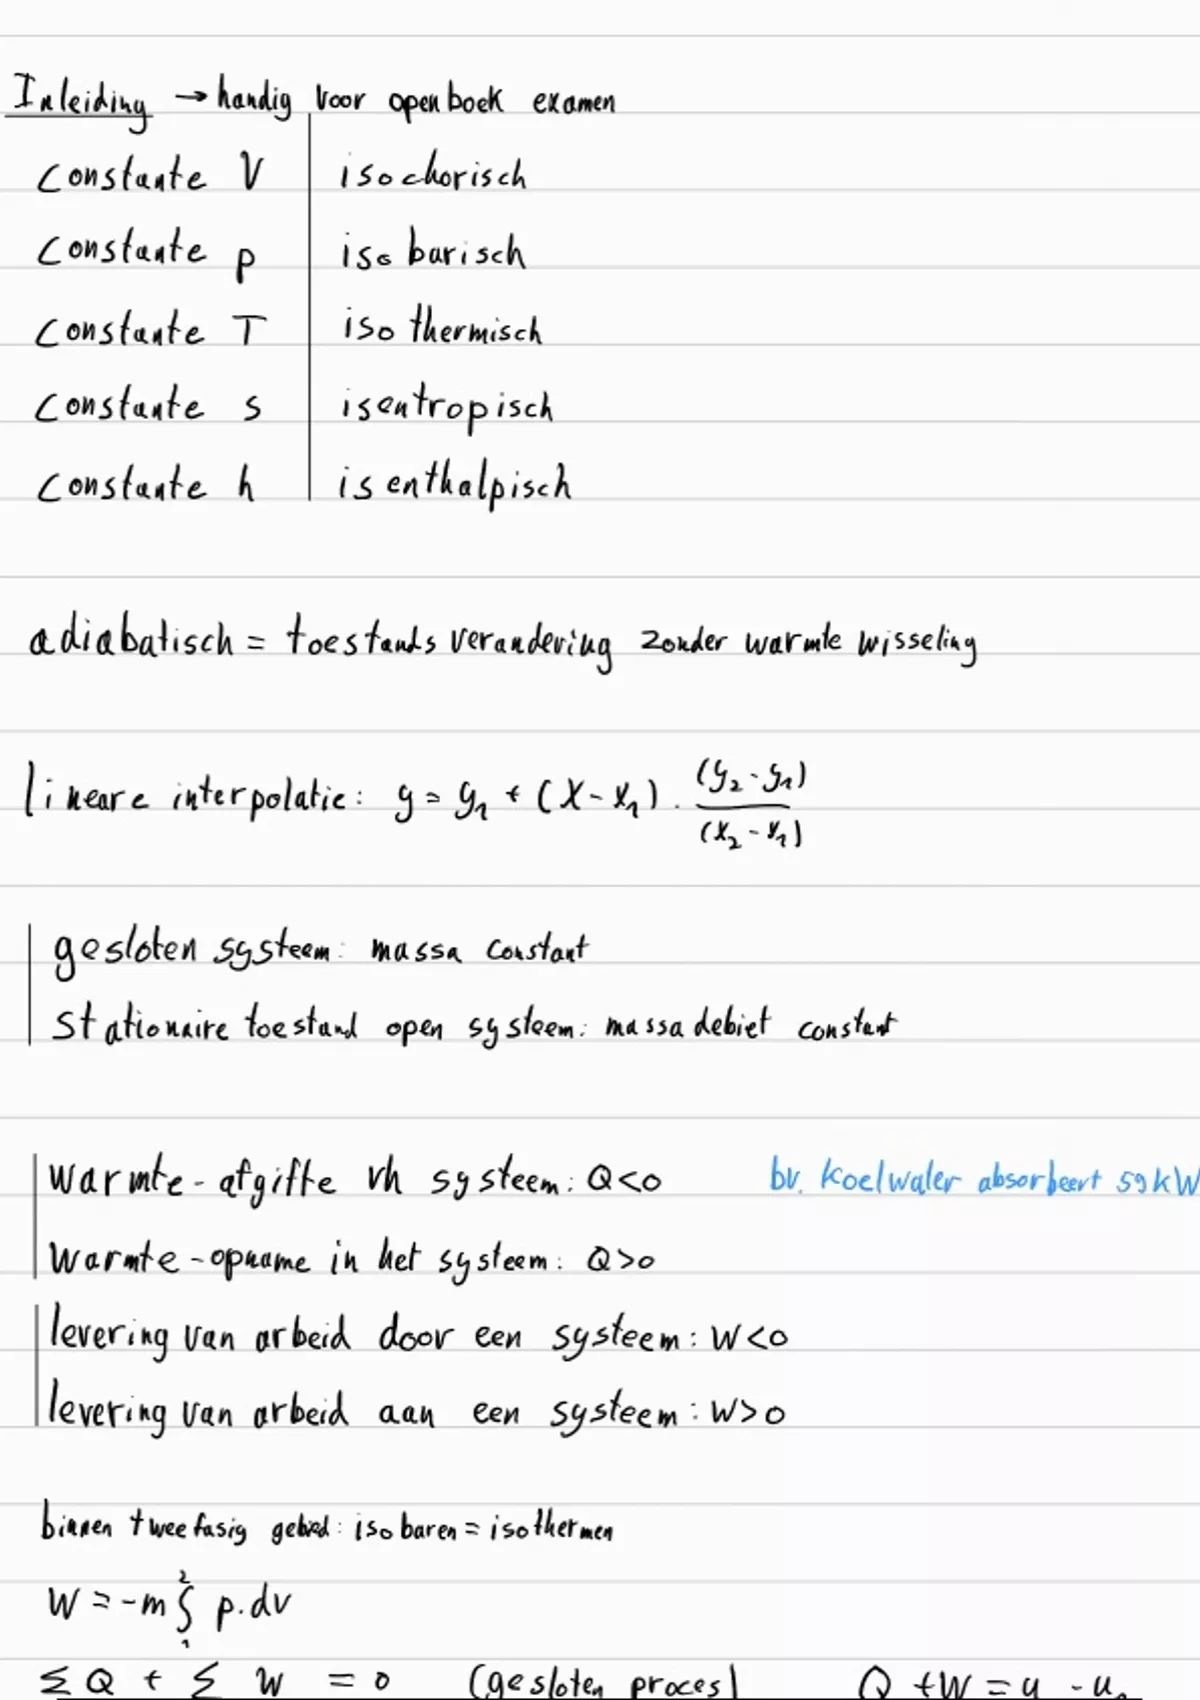 Inleiding → handig voor open boek examen
constante V | isochorisch
constante p | isobarisch
constante T | isothermisch
constante s | isentropisch
constante h | isenthalpisch
adiabatisch = toestandsverandering zonder warmte wisseling
lineare interpolatie: y = y₁ + (x - x₁) · (y₂ - y₁) / (x₂ - x₁)
gesloten systeem: massa constant
stationaire toestand open systeem: massadebiet constant
warmte-afgifte vh systeem: Q<0 bv. koelwater absorbeert 59kW
warmte-opname in het systeem: Q>0
levering van arbeid door een systeem: W<0
levering van arbeid aan een systeem: W>0
binnen tweefasig gebied: isobaren = isothermen
W = -m ∫₁² p.dv
Σ Q + Σ W = 0 (gesloten proces) Q + W = u - u